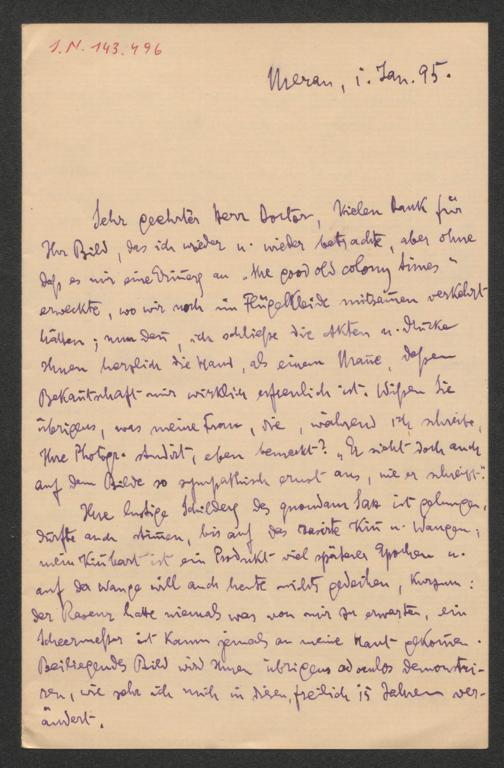 I.N. 143.496
Meran, 1. Jan. 95.
Sehr geehrter Herr Doctor, Vielen Dank für
Ihr Bild, das ich wieder u. wieder betrachte, aber ohne
daß es mir eine Erinnerg an „the good old colony times“
erweckte, wo wir noch im Flügelkleide mitsamen verkehrt
hätten; nun denn, ich schließe die Akten u. drücke
Ihnen herzlich die Hand, als einem Manne, dessen
Bekanntschaft mir wirklich erfreulich ist. Wißen Sie
übrigens, was meine Frau, die, während ich schreibe,
Ihre Photogr. studirt, eben bemerkt? „Er sieht doch auch
auf dem Bilde so sympathisch ernst aus, wie er schreibt“.
Ihre lustige Schilderg des quondam Sax ist gelungen,
dürfte auch stimmen, bis auf das rasirte Kinn u. Wangen;
mein Kinnbart ist ein Produkt viel späterer Epochen u.
auf der Wange will auch heute nichts gedeihen, kurzum:
der Raseur hatte niemals was von mir zu erwarten, ein
Scheermesser ist kaum jemals an meine Haut gekommen.
Beiliegendes Bild wird Ihnen übrigens ad oculos demonstri-
ren, wie sehr ich mich in diesen, freilich 15 Jahren ver-
ändert.